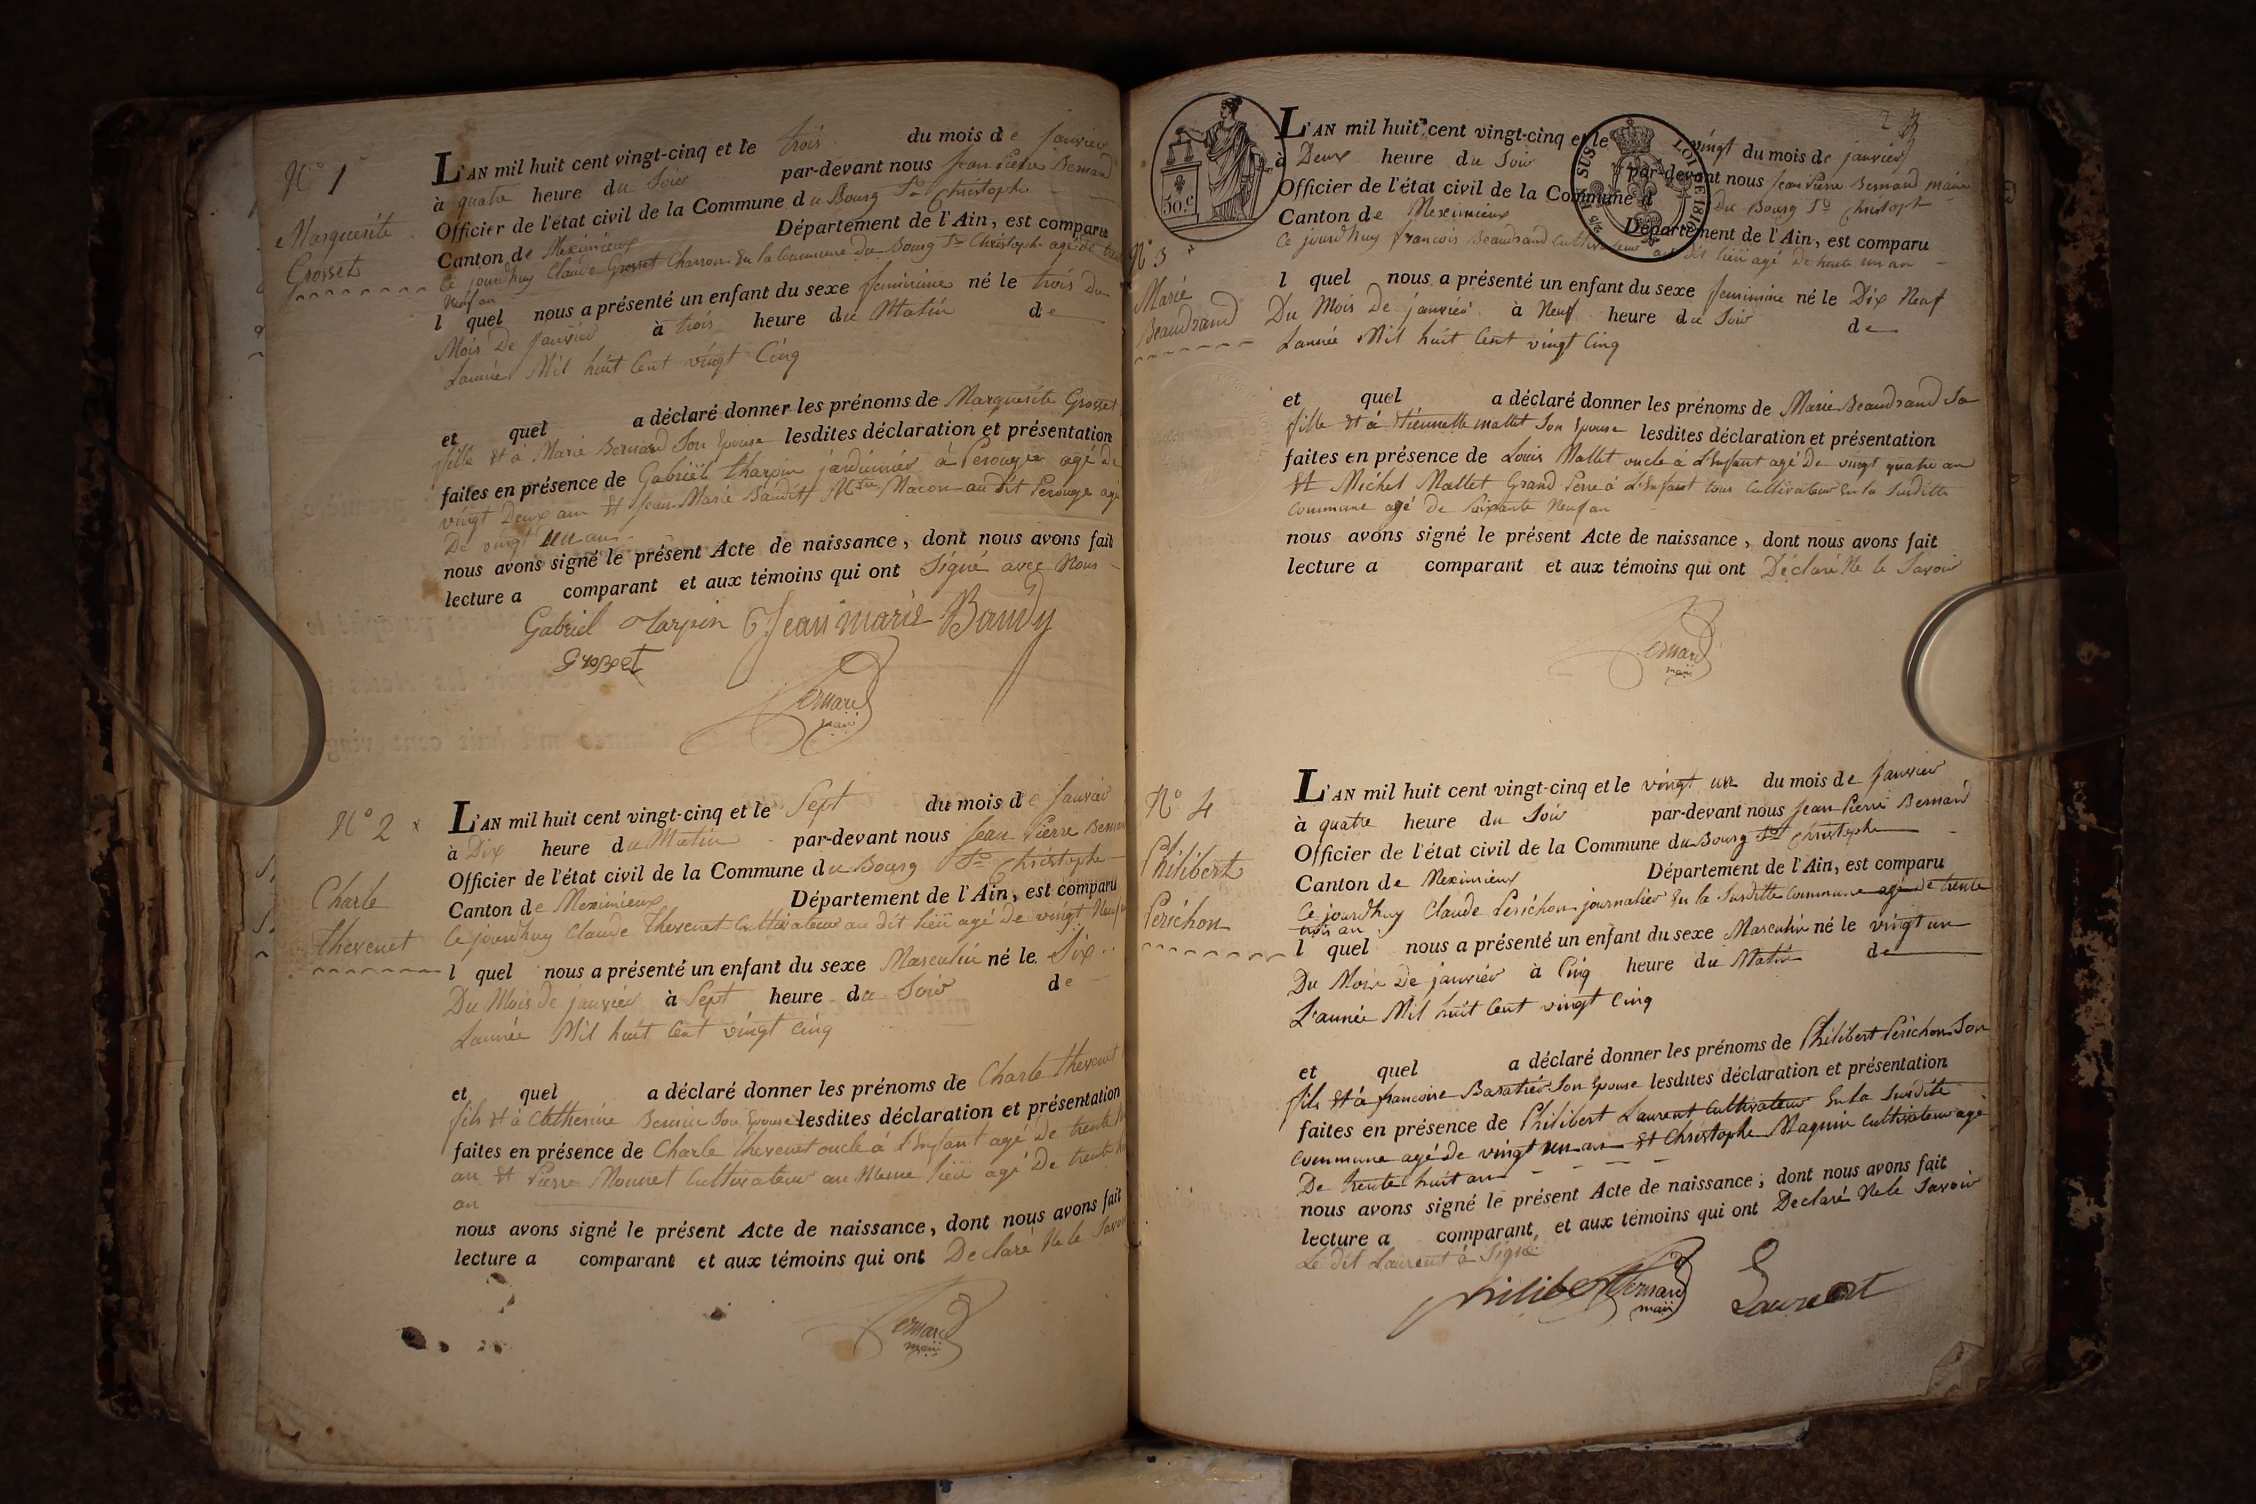 N° 1
Marguerite
Grosset
L'AN mil huit cent vingt-cinq et le trois du mois de janvier
à quatre heure du Soir par-devant nous Jean Pierre Bernard
Officier de l'état civil de la Commune du Bourg St Christophe
Canton de Meximieux Département de l'Ain, est comparu
Ce jourdhuy Claude Grosset Charron En la Commune Du Bourg St Christophe agé de
Neuf an
l quel nous a présenté un enfant du sexe feminine né le trois du
Mois De janvier à trois heure du Matin de
Lannée Mil huit Cent vingt Cinq
et quel a déclaré donner les prénoms de Marguerite Grosset
fille Et à Marie Bernard Son Epouse lesdites déclaration et présentation
faites en présence de Gabriël tharpin jardinnier à Perouges agé de
vingt Deux an Et Jean Marie Baudit Mtre Macon au dit Perouge agé
De vingt un an
nous avons signé le présent Acte de naissance, dont nous avons fait
lecture a comparant et aux témoins qui ont Signé avec Nous
Gabriel tarpin Jean marie Baudy
Grosset
Bernard
maire
N° 2
Charle
thevenet
L'AN mil huit cent vingt-cinq et le Sept du mois de Janvier
à Dix heure du Matin par-devant nous Jean Pierre Bernard
Officier de l'état civil de la Commune du Bourg St Christophe
Canton de Meximieux Département de l'Ain, est comparu
Ce jourdhuy Claude thevenet Cultivateur au dit liëu agé De vingt Neuf
l quel nous a présenté un enfant du sexe Masculin né le Six
Du Mois de janvier à Sept heure du Soir de
Lannée Mil huit Cent vingt Cinq
et quel a déclaré donner les prénoms de Charle thevenet
fils Et à Catherine Son Epouse lesdites déclaration et présentation
faites en présence de Charle thevenet oncle à L'Enfant agé De trente
an Et Pierre Monnet Cultivateur au Meme liëu agé De trente
an
nous avons signé le présent Acte de naissance, dont nous avons fait
lecture a comparant et aux témoins qui ont Declaré Ne le Savoir
Bernard
maire
30.c
SUS LOI DE 1816
N° 3
Marie
Beaudrand
L'AN mil huit cent vingt-cinq et le vingt du mois de janvier
à Deux heure du Soir par-devant nous Jean Pierre Bernard maire
Officier de l'état civil de la Commune d Du Bourg St Christoph
Canton de Meximieux Département de l'Ain, est comparu
Ce jourdhuy francois Beaudrand Cultivateur au dit liëu agé De trente un an
l quel nous a présenté un enfant du sexe feminine né le Dix Neuf
Du Mois De janvier à Neuf heure du Soir de
Lannée Mil huit Cent vingt Cinq
et quel a déclaré donner les prénoms de Marie Beaudrand Sa
fille Et à Etiennette mallet Son Epouse lesdites déclaration et présentation
faites en présence de Louis Mallet oncle à L'Enfant agé De vingt quatre an
Et Michel Mallet Grand Pere à L'Enfant tous Cultivateur En la Susditte
Commune agé de Soixante Neuf an
nous avons signé le présent Acte de naissance, dont nous avons fait
lecture a comparant et aux témoins qui ont Déclaré Ne le Savoir
Bernard
maire
N° 4
Philibert
Perichon
L'AN mil huit cent vingt-cinq et le vingt un du mois de Janvier
à quatre heure du Soir par-devant nous Jean Pierre Bernard
Officier de l'état civil de la Commune du Bourg St Christophe
Canton de Meximieux Département de l'Ain, est comparu
Ce jourdhuy Claude Perichon journalier En la Susditte Commune agé de trente
trois an
l quel nous a présenté un enfant du sexe Masculin né le vingt un
Du Mois De janvier à Cinq heure du Matin de
L'année Mil huit Cent vingt Cinq
et quel a déclaré donner les prénoms de Philibert Perichon Son
fils Et à francoise Baratier Son Epouse lesdites déclaration et présentation
faites en présence de Philibert Laurent Cultivateur En la Susdite
Commune agé de vingt un an Et Christophe Magnin Cultivateur agé
De trente huit an
nous avons signé le présent Acte de naissance; dont nous avons fait
lecture a comparant, et aux témoins qui ont Declaré Ne le Savoir
Le dit Laurent à Signé
philibert Bernard Laurent
maire